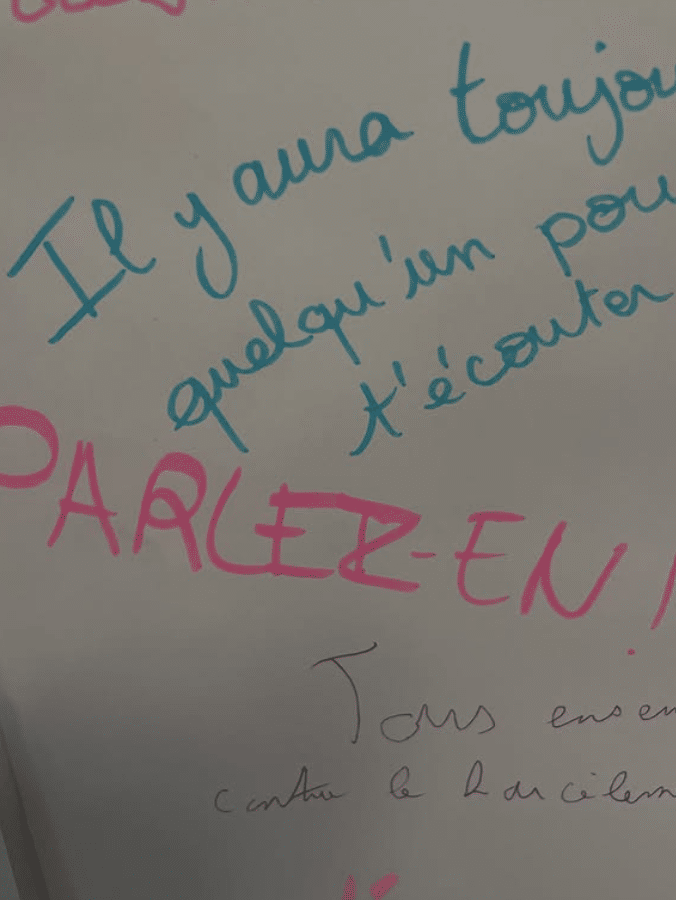 Il y aura toujou
quelqu'un pou
t'écouter
PARLEZ-EN !
Tous ensem
contre le harcèlem